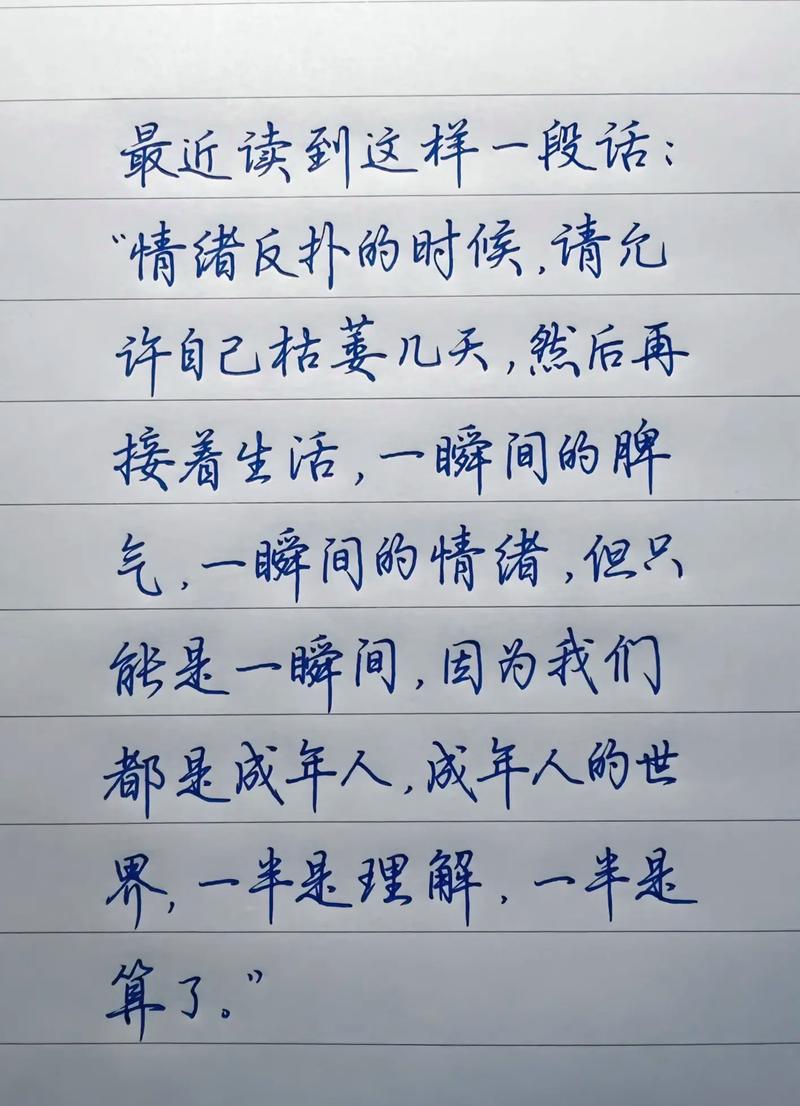 最近读到这样一段话：
“情绪反扑的时候，请允
许自己枯萎几天，然后再
接着生活，一瞬间的脾
气，一瞬间的情绪，但只
能是一瞬间，因为我们
都是成年人，成年人的世
界，一半是理解，一半是
算了。”